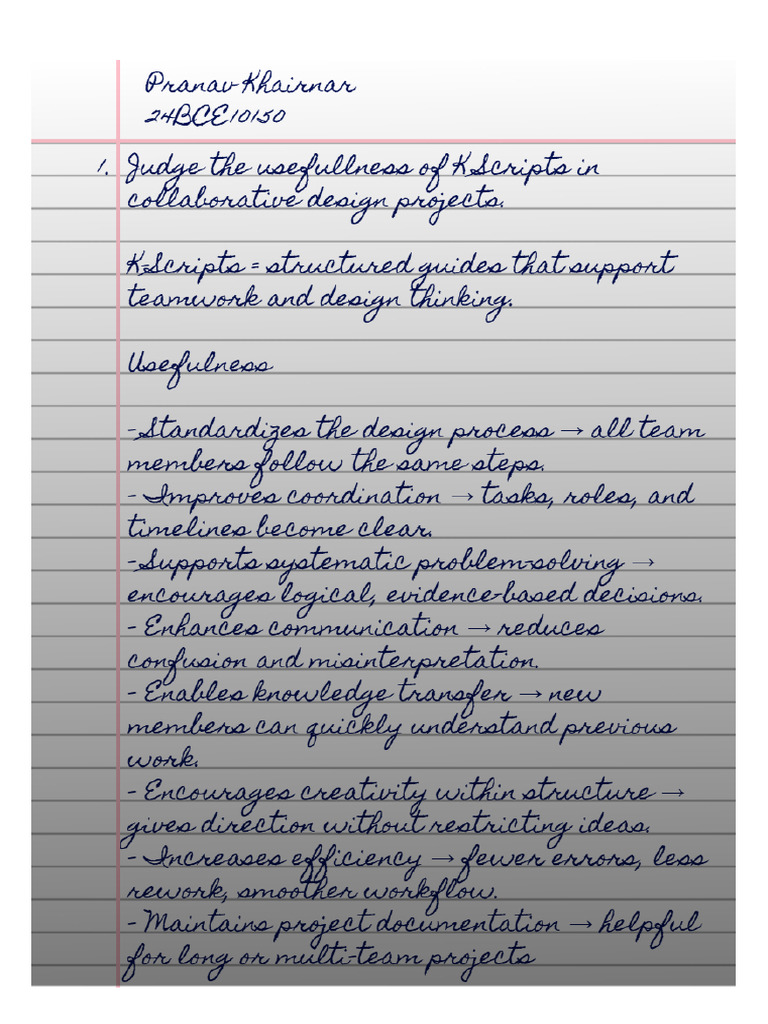 Pranav Khairnar
24BCE10150
1. Judge the usefullness of K Scripts in
collaborative design projects.
K-Scripts = structured guides that support
teamwork and design thinking.
Usefulness
-Standardizes the design process → all team
members follow the same steps.
- Improves coordination → tasks, roles, and
timelines become clear.
-Supports systematic problem-solving →
encourages logical, evidence-based decisions.
- Enhances communication → reduces
confusion and misinterpretation.
- Enables knowledge transfer → new
members can quickly understand previous
work.
- Encourages creativity within structure →
gives direction without restricting ideas.
- Increases efficiency → fewer errors, less
rework, smoother workflow.
- Maintains project documentation → helpful
for long or multi-team projects